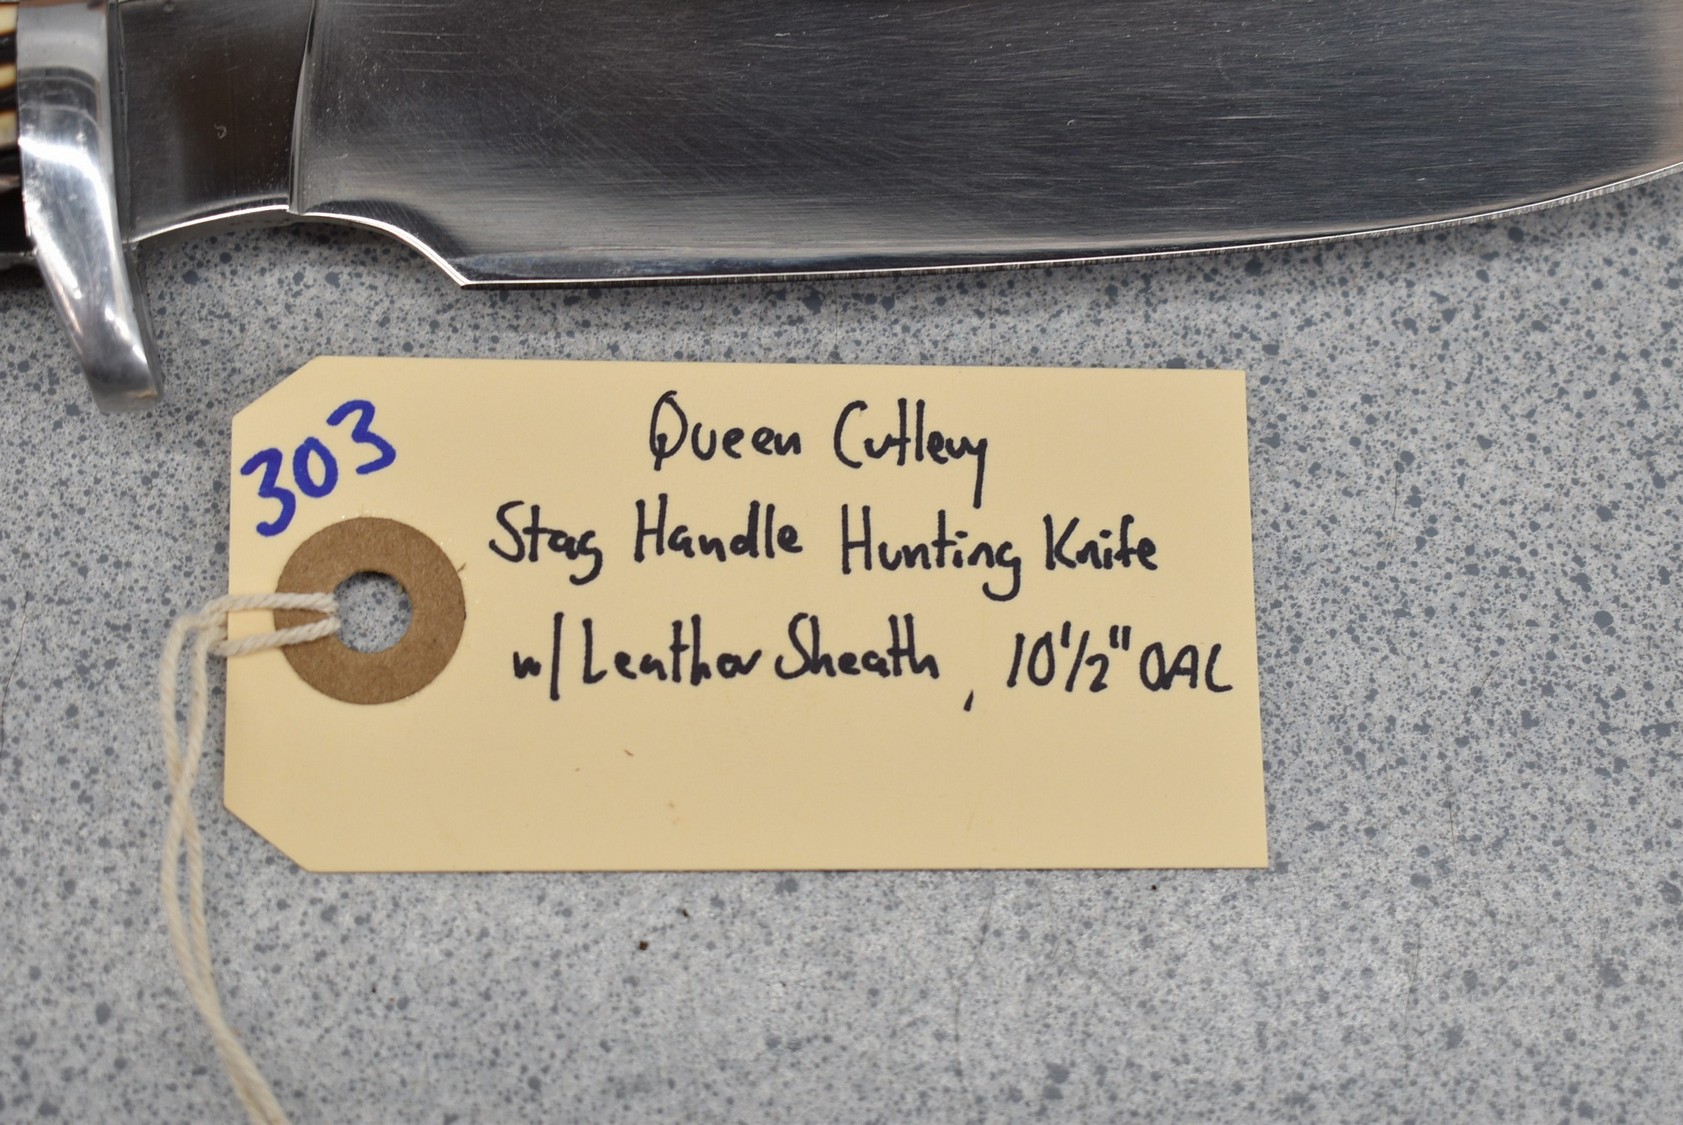 303
Queen Cutlery
Stag Handle Hunting Knife
w/ Leather Sheath, 10 1/2" OAL